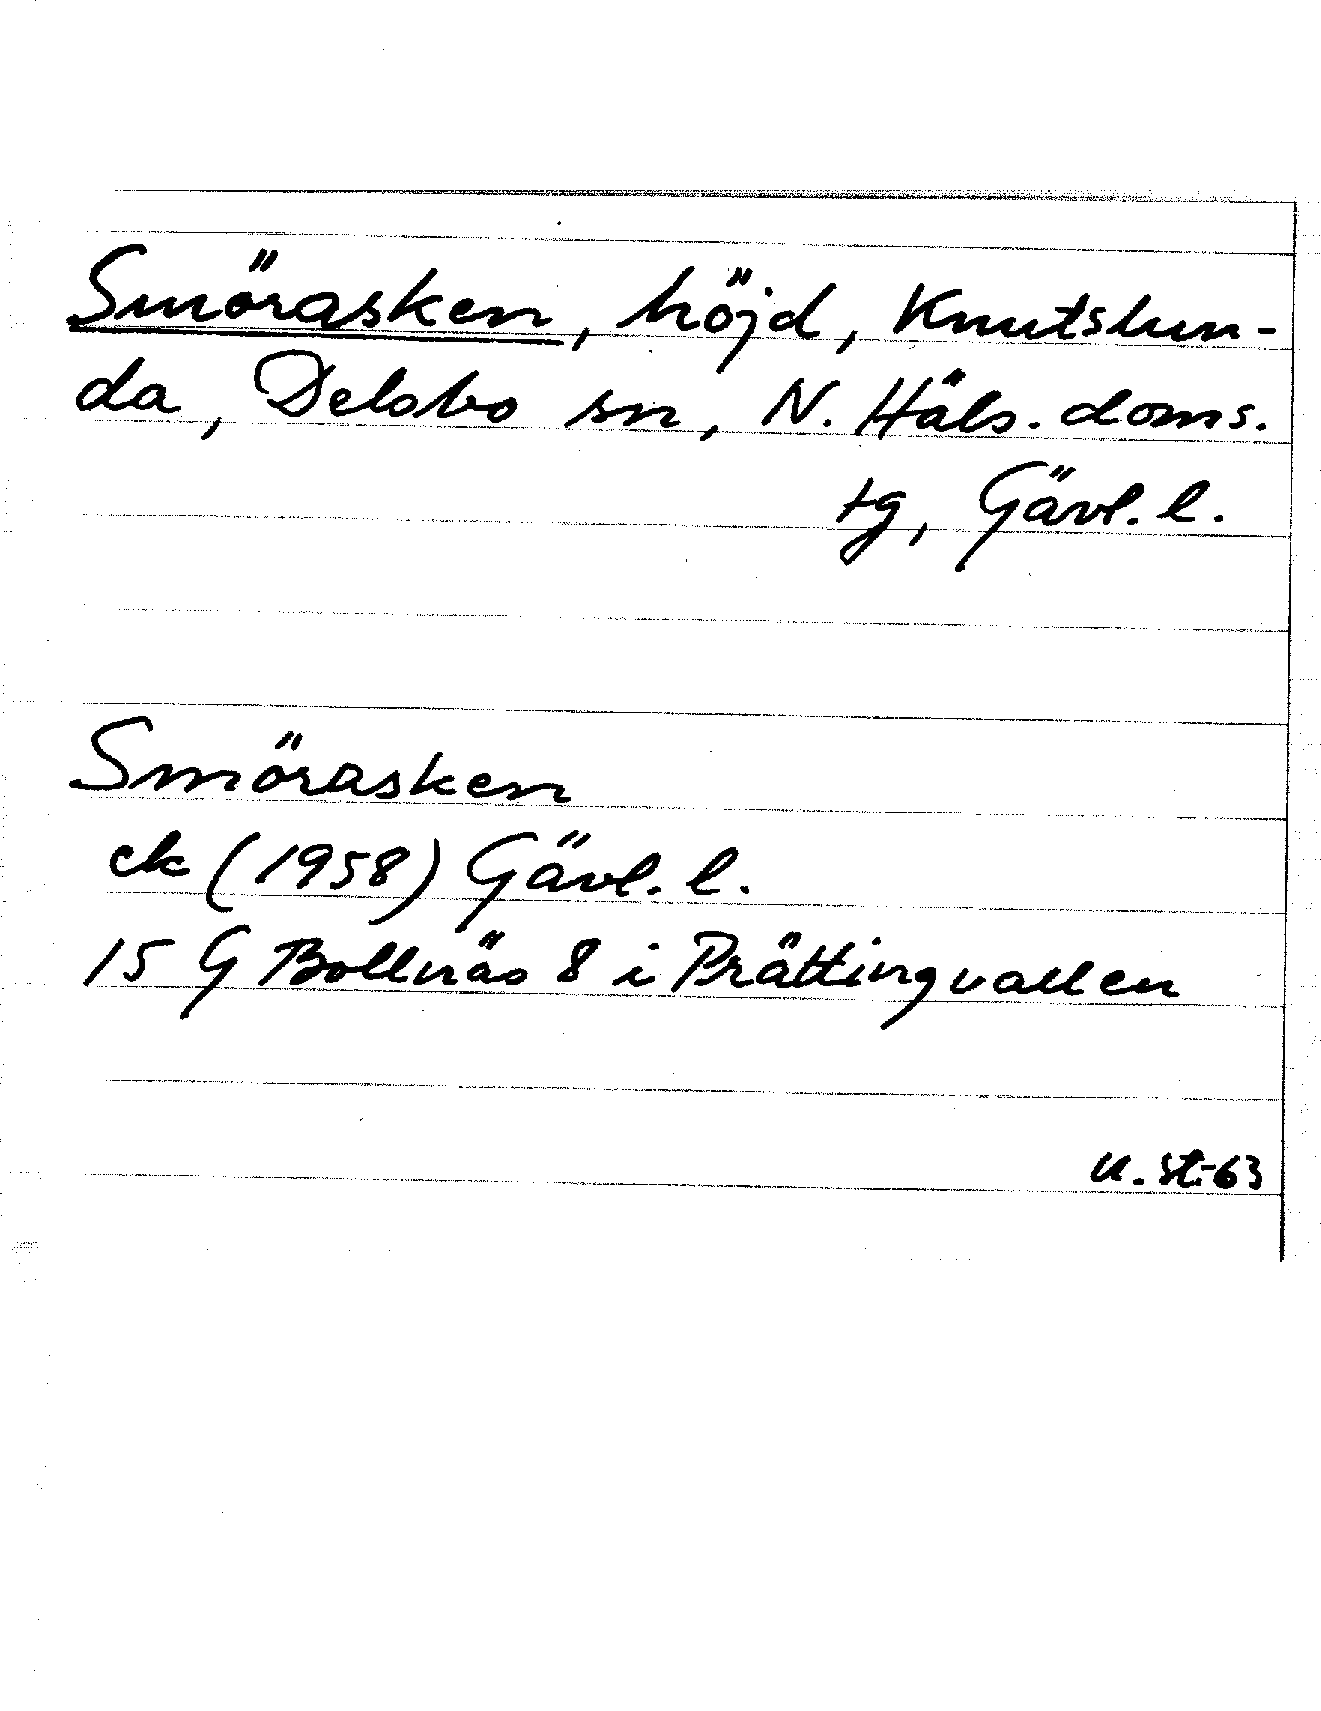 Smörasken, höjd, Knutslun-
da, Delsbo sn, N. Häls. doms.
tg, Gävl. l.
Smörasken
ek (1958) Gävl. l.
15 G Bollnäs 8 i Prättingvallen
u. st-63